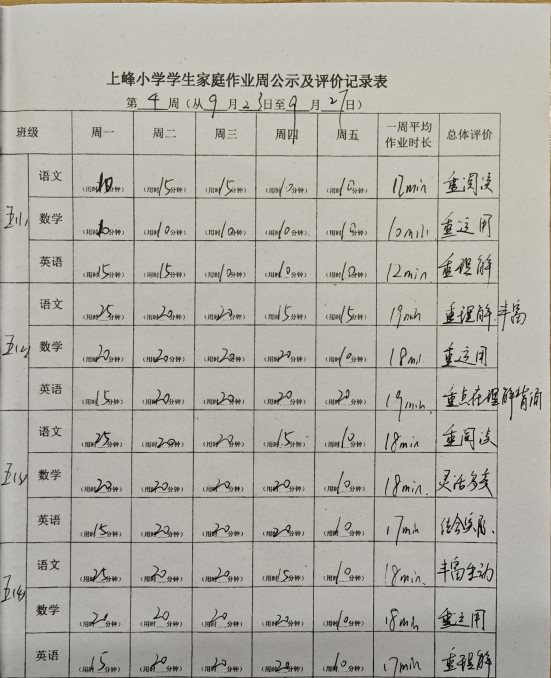 上峰小学学生家庭作业周公示及评价记录表
第 4 周（从 9 月 23日至 9 月 27日）
班级 周一 周二 周三 周四 周五 一周平均作业时长 总体评价
五(1) 语文 (用时10分钟) (用时15分钟) (用时15分钟) (用时10分钟) (用时10分钟) 12min 重阅读
数学 (用时10分钟) (用时10分钟) (用时10分钟) (用时10分钟) (用时10分钟) 10min 重运用
英语 (用时15分钟) (用时15分钟) (用时10分钟) (用时10分钟) (用时10分钟) 12min. 重理解
五(2) 语文 (用时25分钟) (用时20分钟) (用时20分钟) (用时15分钟) (用时15分钟) 19min 重理解丰富
数学 (用时20分钟) (用时20分钟) (用时20分钟) (用时20分钟) (用时10分钟) 18min 重运用
英语 (用时15分钟) (用时20分钟) (用时20分钟) (用时20分钟) (用时20分钟) 19min. 重点在理解背诵
五(3) 语文 (用时25分钟) (用时20分钟) (用时20分钟) (用时15分钟) (用时10分钟) 18min. 重阅读
数学 (用时20分钟) (用时20分钟) (用时20分钟) (用时20分钟) (用时10分钟) 18min. 灵活多变
英语 (用时15分钟) (用时20分钟) (用时20分钟) (用时20分钟) (用时10分钟) 17min 结合实际.
五(4) 语文 (用时25分钟) (用时20分钟) (用时20分钟) (用时15分钟) (用时10分钟) 18min. 丰富生动
数学 (用时20分钟) (用时20分钟) (用时20分钟) (用时20分钟) (用时10分钟) 18min 重运用
英语 (用时15分钟) (用时20分钟) (用时20分钟) (用时20分钟) (用时10分钟) 17min 重理解